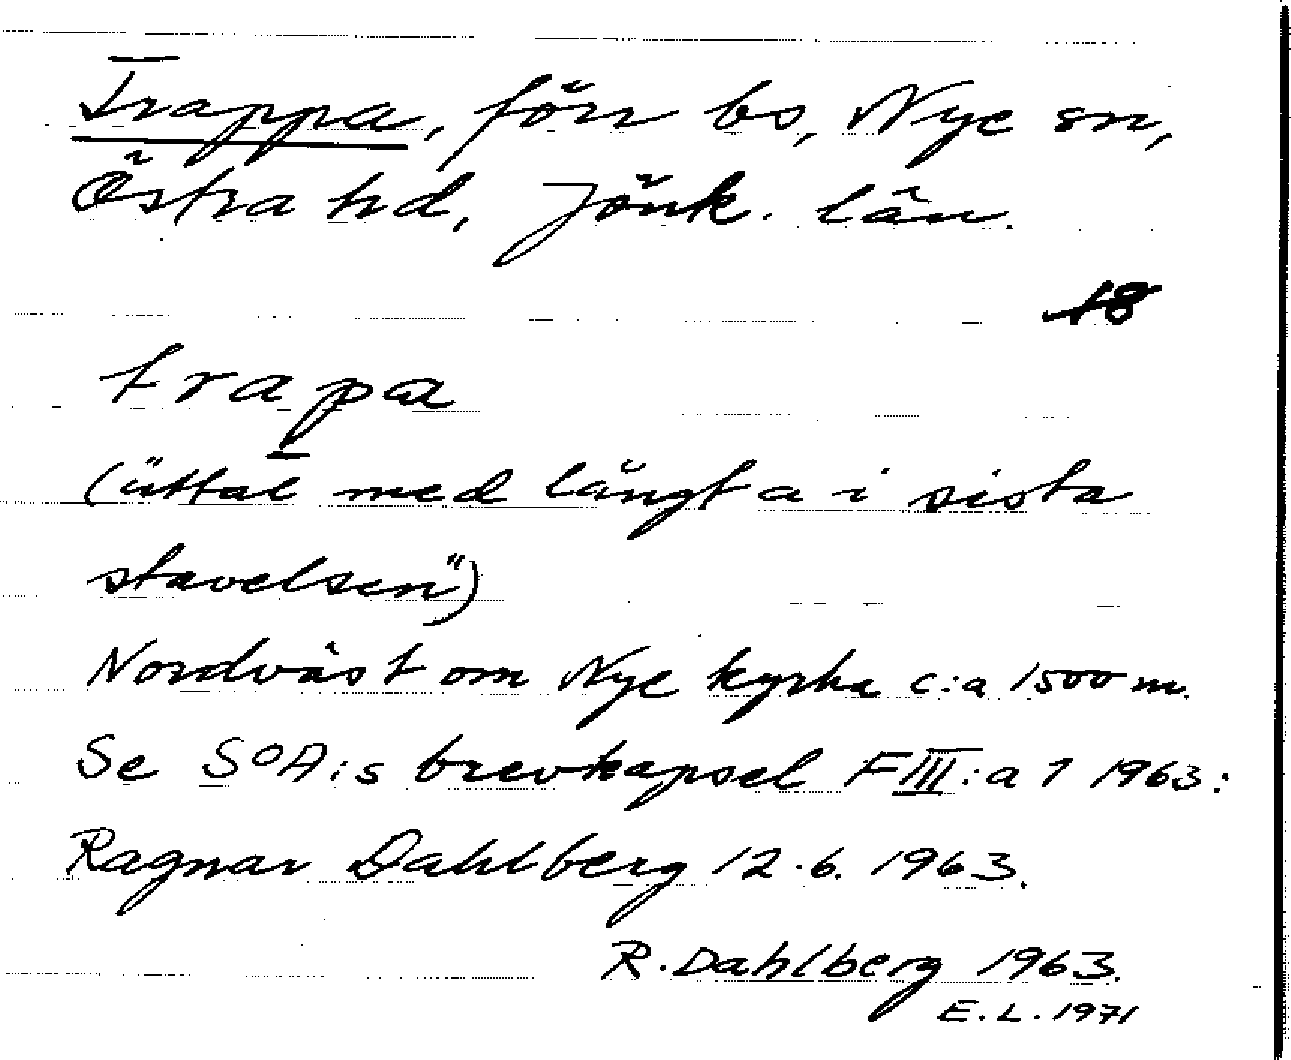 Trappa, förr bs, Nye sn,
Östra hd, Jönk. län.
18
trapa
("uttal med långt a i sista
stavelsen")
Nordväst om Nye kyrka c:a 1500 m.
Se SOA:s brevkapsel FIII:a 7 1963:
Ragnar Dahlberg 12.6. 1963.
R. Dahlberg 1963.
E. L. 1971